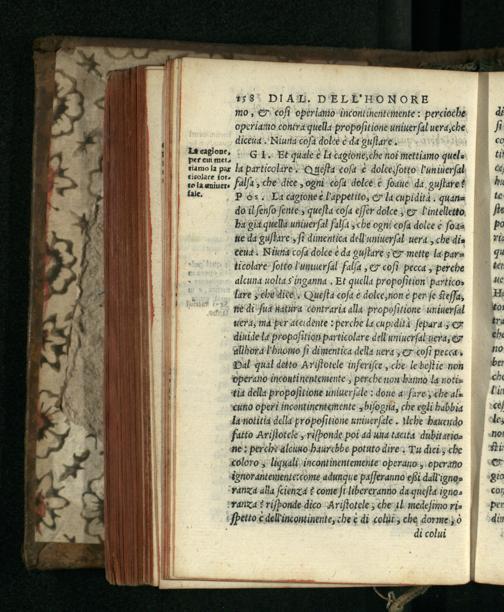 158 DIAL. DELL'HONORE
mo, & così operiamo incontinentemente: percioche
operiamo contra quella propositione uniuersal uera, che
diceua. Niuna cosa dolce è da gustare.
La cagione,
per cui met-
tiamo la par
ticolare sot-
to la uniuer-
sale.
GI. Et quale è la cagione, che noi mettiamo quel-
la particolare. Questa cosa è dolce, sotto l'uniuersal
falsa, che dice, ogni cosa dolce è soaue da gustare?
POS. La cagione è l'appetito, & la cupidità. quan-
do il senso sente, questa cosa esser dolce, & l'intelletto
ha già quella uniuersal falsa, che ogni cosa dolce è soa-
ue da gustare, si dimentica dell'uniuersal uera, che di-
ceua. Niuna cosa dolce è da gustare; & mette la par-
ticolare sotto l'uniuersal falsa, & così pecca, perche
alcuna uolta s'inganna. Et quella proposition partico-
lare, che dice. Questa cosa è dolce, non è per se stessa,
ne di sua natura contraria alla propositione uniuersal
uera, ma per accidente: perche la cupidità separa, &
diuide la proposition particolare dell'uniuersal uera, &
allhora l'huomo si dimentica della uera, & così pecca.
Dal qual detto Aristotele inferisce, che le bestie non
operano incontinentemente, perche non hanno la noti-
tia della propositione uniuersale: doue a fare, che al-
cuno operi incontinentemente, bisogna, che egli habbia
la notitia della propositione uniuersale. Ilche hauendo
fatto Aristotele, risponde poi ad una tacita dubitatio-
ne: perche alcuno haurebbe potuto dire. Tu dici, che
coloro, liquali incontinentemente operano, operano
ignorantemente: come adunque passeranno essi dall'igno-
ranza alla scienza? come si libereranno da questa igno-
ranza? risponde dico Aristotele, che il medesimo ri-
spetto è dell'incontinente, che è di colui, che dorme, ò
di colui